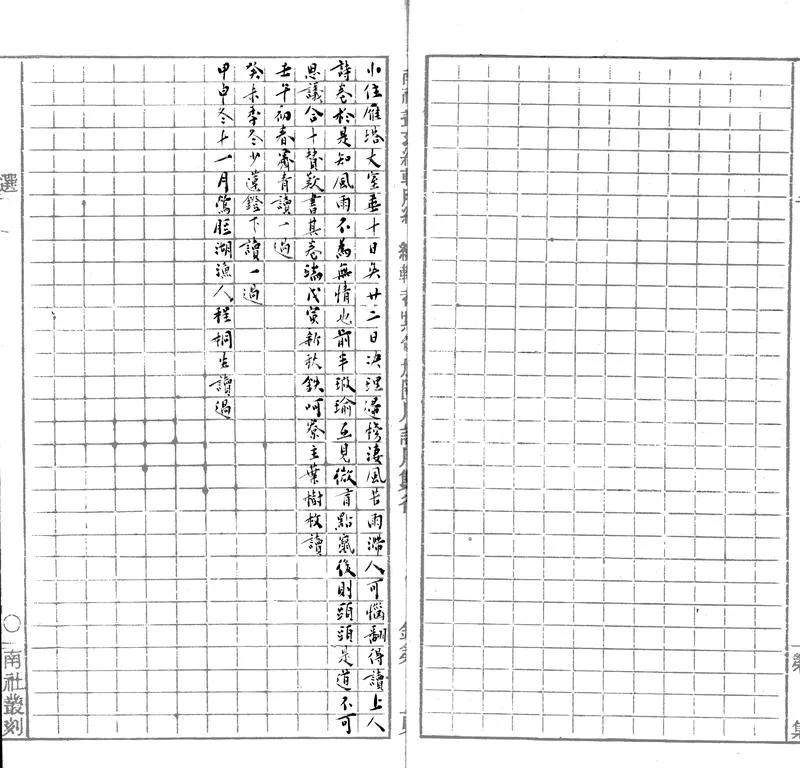 小住雁塔大室垂十日矣廿二日決理歸橈淒風苦雨滯人可惱翻得讀上人
詩卷於是知風雨不爲無情也前半瑕瑜互見微有點竄後則頭頭是道不可
思議合十贊歎書其卷端戊寅新秋鉄呵寮主葉樹枚讀
壬午初春甯青讀一過
癸未季冬少蓮鐙下讀一過
甲申冬十一月鶯脰湖漁人程桐生讀過
選
南社叢刻
第 集